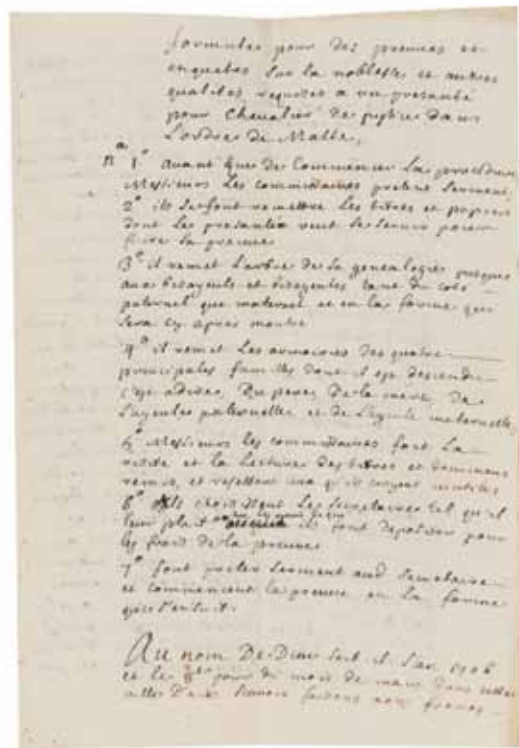 formules pour des preuves et
enquetes sur la noblesse, et autres
qualites requises a un presanté
pour Chevalier de justice dans
Lordre de Malte,
1° avant que de Commencer La procedure
Messieurs Les commissaires pretent serment,
2° ils se font remettre Les titres et papiers
dont Les presantés veut se servir pour
faire sa preuve
3° il remet L'arbre de sa genealogies jusques
aux bizayeuls et bizayeules tant du coté
paternel que maternel et en la forme que
sera cy apres montre
4° il remet Les armoiries des quatre
principales familles dont il est descendu
c'est adire, Du pere, De la mere, De
L'ayeules paternelles, et de L'ayeule maternelle,
5° Messieurs les commissaires font La
visite et la Lecture des titres et documens
remis, et rejettent ceux qu'ils croyent inutiles
6° ils choisissent Les secretaires tel qu'il
leur plait ils font deposition pour
les frais de la preuve
7° font preter serment aud secretaire
et commencent la preuve en La forme
qui s'ensuit.
Au nom De Dieu soit il L'an 1706
et le jour du mois de mars Dans cette
ville D'aix nous freres